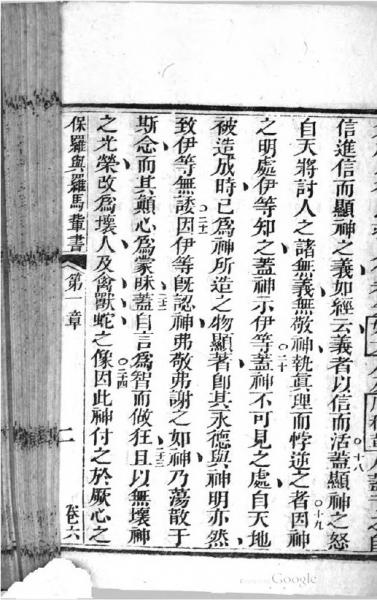 信進信而顯神之義如經云義者以信而活蓋○十八顯神之怒
自天將討人之諸無義無敬神執眞理而悖逆之者○十九因神
之明處伊等知之蓋神示伊等○二十蓋神不可見之處自天地
被造成時已爲神所造之物顯著卽其永德與神明亦然
致伊等無諉○二一因伊等旣認神弗敬弗謝之如神乃蕩散于
斯念而其顛心爲蒙昧○二二蓋自言爲智而做狂○二三且以無壞神
之光榮改爲壞人及禽獸蛇之像○二四因此神付之於厥心之
保羅與羅馬輩書 第一章 二 卷六
Google